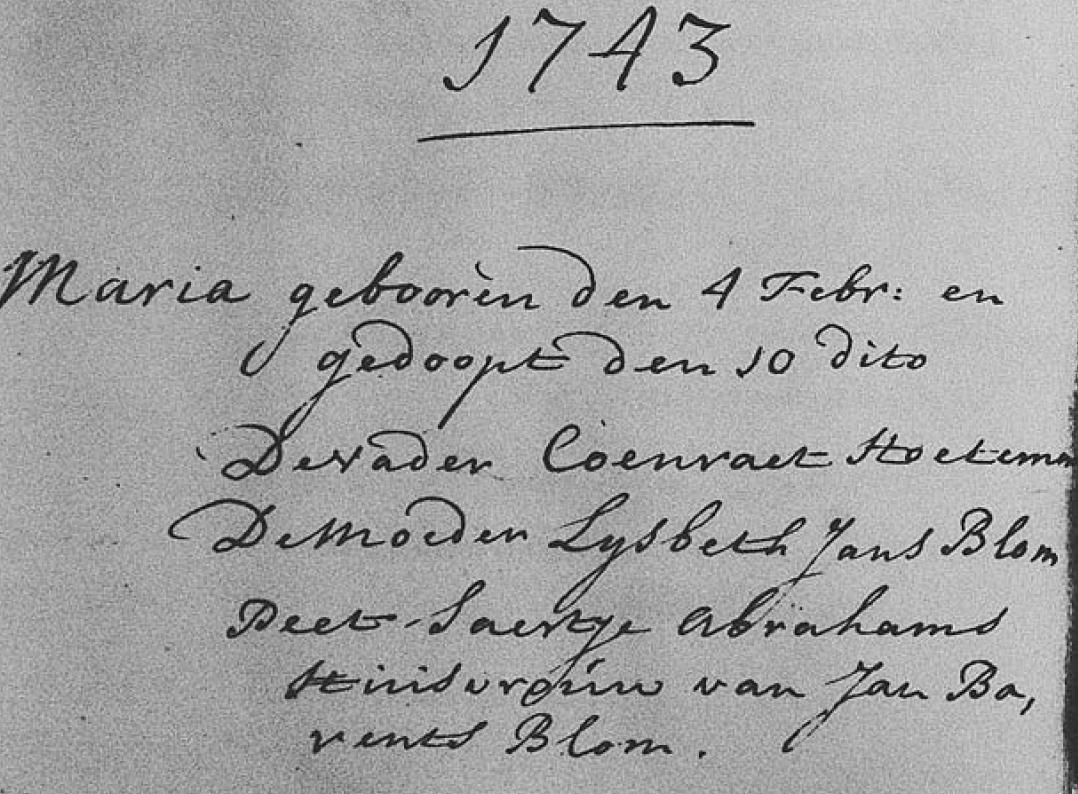 1743
Maria geboorèn den 4 Febr: en
gedoopt den 10 dito
De vader Coenraet Hoetem
De Moeder Lysbeth Jans Blom
Peet Saertje Abrahams
Huisvrouw van Jan Ba,
rents Blom.